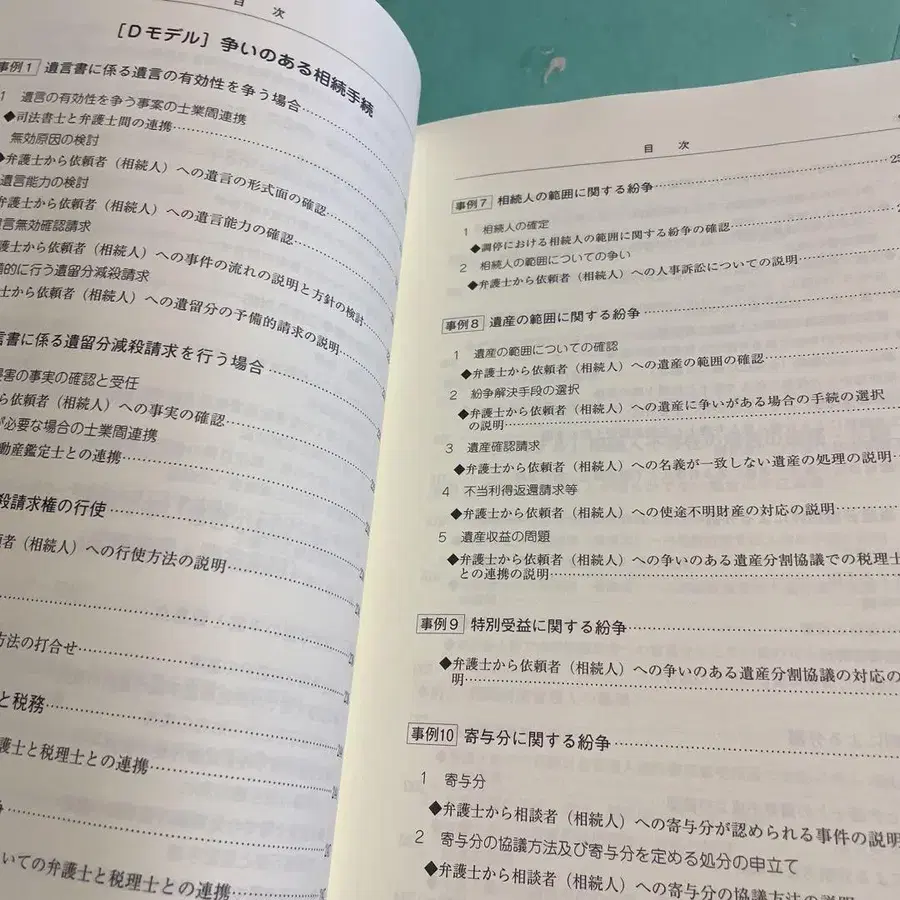 目次
［Dモデル］争いのある相続手続
事例1 遺言書に係る遺言の有効性を争う場合
1 遺言の有効性を争う事案の士業間連携
◆司法書士と弁護士間の連携
無効原因の検討
◆弁護士から依頼者（相続人）への遺言の形式面の確認
遺言能力の検討
弁護士から依頼者（相続人）への遺言能力の確認
遺言無効確認請求
護士から依頼者（相続人）への事件の流れの説明と方針の検討
的に行う遺留分減殺請求
士から依頼者（相続人）への遺留分の予備的請求の説明
言書に係る遺留分減殺請求を行う場合
侵害の事実の確認と受任
から依頼者（相続人）への事実の確認
が必要な場合の士業間連携
動産鑑定士との連携
殺請求権の行使
頼者（相続人）への行使方法の説明
方法の打合せ
と税務
護士と税理士との連携
いての弁護士と税理士との連携
目次
事例7 相続人の範囲に関する紛争
1 相続人の確定
◆調停における相続人の範囲に関する紛争の確認
2 相続人の範囲についての争い
◆弁護士から依頼者（相続人）への人事訴訟についての説明
事例8 遺産の範囲に関する紛争
1 遺産の範囲についての確認
◆弁護士から依頼者（相続人）への遺産の範囲の確認
2 紛争解決手段の選択
◆弁護士から依頼者（相続人）への遺産に争いがある場合の手続の選択
の説明
3 遺産確認請求
◆弁護士から依頼者（相続人）への名義が一致しない遺産の処理の説明
4 不当利得返還請求等
◆弁護士から依頼者（相続人）への使途不明財産の対応の説明
5 遺産収益の問題
◆弁護士から依頼者（相続人）への争いのある遺産分割協議での税理士
との連携の説明
事例9 特別受益に関する紛争
◆弁護士から依頼者（相続人）への争いのある遺産分割協議の対応の
明
事例10 寄与分に関する紛争
1 寄与分
◆弁護士から相談者（相続人）への寄与分が認められる事件の説明
2 寄与分の協議方法及び寄与分を定める処分の申立て
◆弁護士から相談者（相続人）への寄与分の協議方法の説明